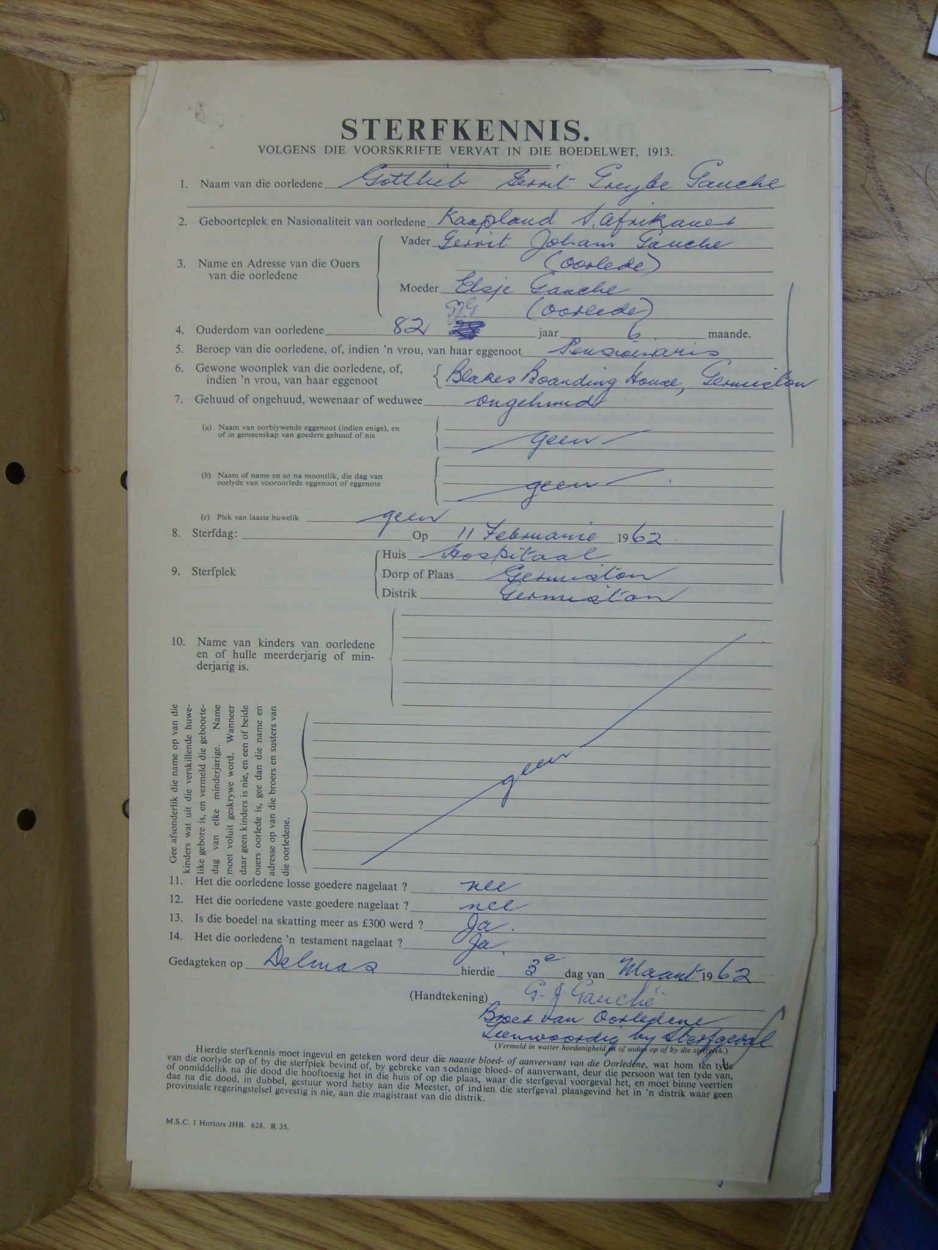 STERFKENNIS.
VOLGENS DIE VOORSKRIFTE VERVAT IN DIE BOEDELWET, 1913.
1. Naam van die oorledene Gottlieb Gerrit Greybe Gauche
2. Geboorteplek en Nasionaliteit van oorledene Kaapland S. Afrikaner
Vader Gerrit Johann Gauche
3. Name en Adresse van die Ouers (Oorlede)
van die oorledene
Moeder Elsje Gauche
GJG (Oorlede)
4. Ouderdom van oorledene 82 jaar 6 maande.
5. Beroep van die oorledene, of, indien 'n vrou, van haar eggenoot Pensionaris
6. Gewone woonplek van die oorledene, of,
indien 'n vrou, van haar eggenoot Blakes Boarding House, Germiston
7. Gehuud of ongehuud, wewenaar of weduwee ongehuud
(a) Naam van oorblywende eggenoot (indien enige), en
of in gemeenskap van goedere gehuud of nie geen
(b) Naam of name en so na moontlik, die dag van
oorlyde van vooroorlede eggenoot of eggenote geen
(c) Plek van laaste huwelik geen
8. Sterfdag: Op 11 Februarie 1962
Huis Hospitaal
9. Sterfplek Dorp of Plaas Germiston
Distrik Germiston
10. Name van kinders van oorledene
en of hulle meerderjarig of min-
derjarig is.
Gee afsonderlik die name op van die
kinders wat uit die verskillende huwe-
like gebore is, en vermeld die geboorte-
dag van elke minderjarige. Name
moet voluit geskrywe word. Wanneer
daar geen kinders is nie, en een of beide
ouers oorlede is, gee dan die name en
adresse op van die broers en susters van
die oorledene.
geen
11. Het die oorledene losse goedere nagelaat ? nee
12. Het die oorledene vaste goedere nagelaat ? nee
13. Is die boedel na skatting meer as £300 werd ? Ja.
14. Het die oorledene 'n testament nagelaat ? Ja.
Gedagteken op Delmas hierdie 3e dag van Maart 1962
(Handtekening) G. J Gauché
Broer van Oorledene
Teenwoordig by Sterfgeval
(Vermeld in watter hoedanigheid en of aldan op of by die sterfplek.)
Hierdie sterfkennis moet ingevul en geteken word deur die naaste bloed- of aanverwant van die Oorledene, wat hom ten tyde
van die oorlyde op of by die sterfplek bevind of, by gebreke van sodanige bloed- of aanverwant, deur die persoon wat ten tyde van,
of onmiddellik na die dood die hooftoesig het in die huis of op die plaas, waar die sterfgeval voorgeval het, en moet binne veertien
dae na die dood, in dubbel, gestuur word hetsy aan die Meester, of indien die sterfgeval plaasgevind het in 'n distrik waar geen
provinsiale regeringsetel gevestig is nie, aan die magistraat van die distrik.
M.S.C. 1 Hortors JHB. 628. R 35.